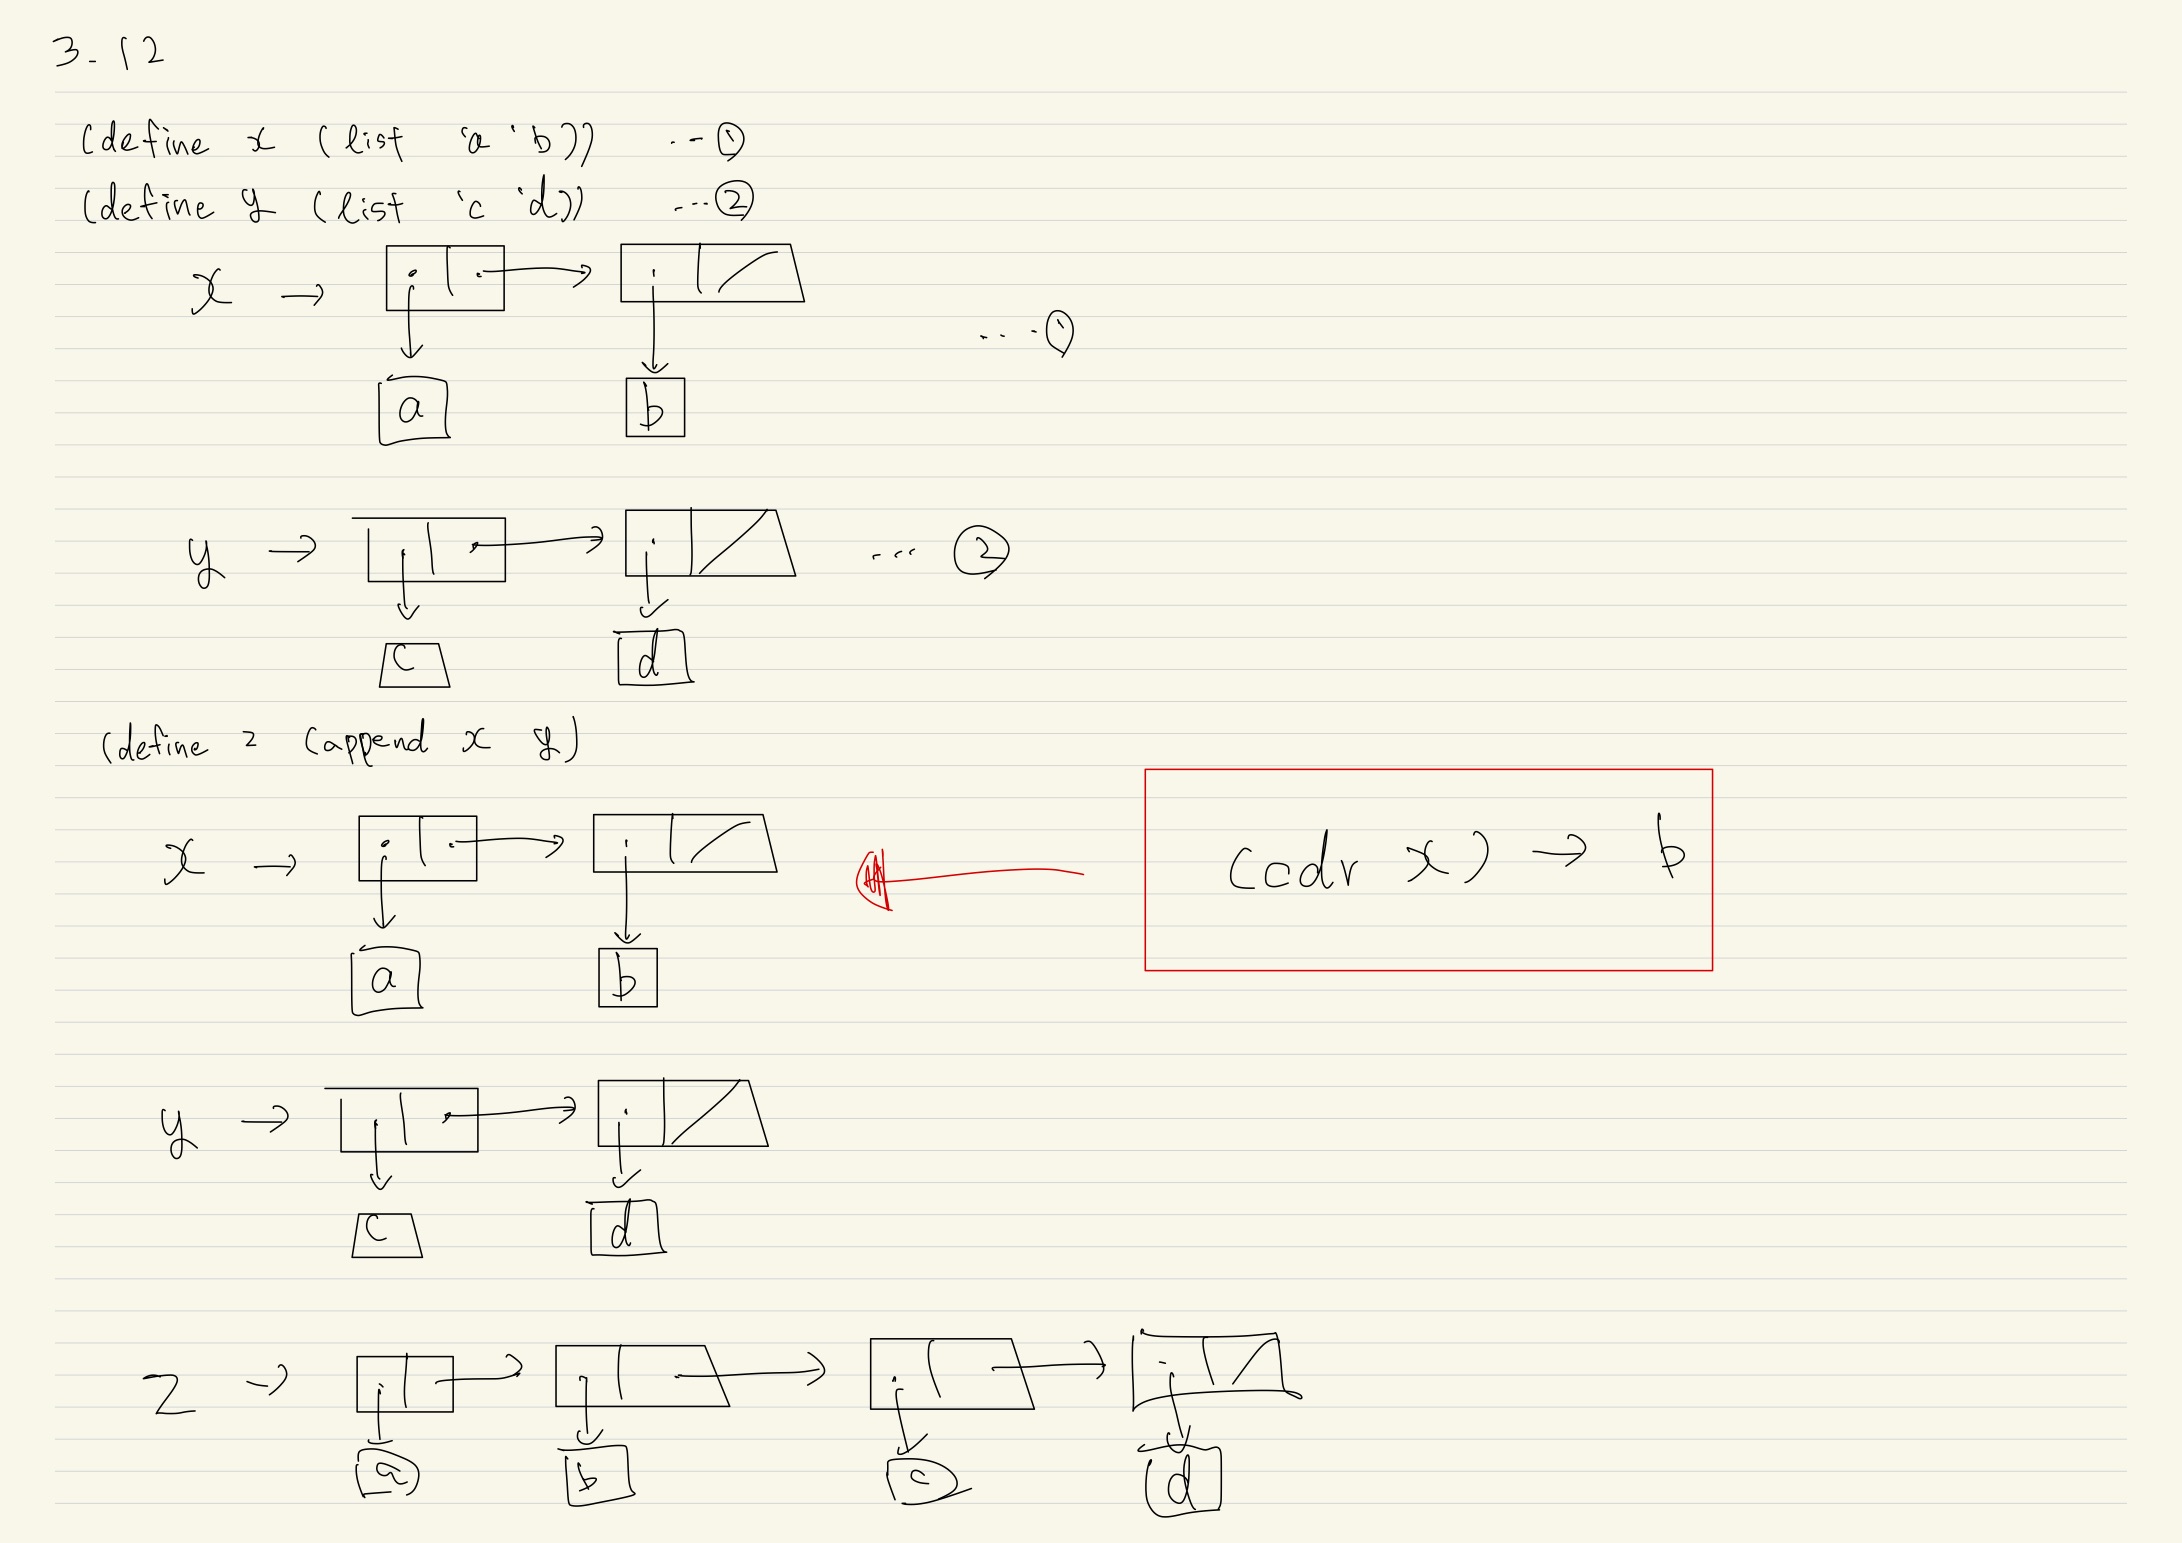 3.12
(define x (list 'a 'b)) ... ①
(define y (list 'c 'd)) ... ②
x →
... ①
a b
y → ... ②
c d
(define z (append x y)
x →
(cdr x) → b
a b
y →
c d
z →
a b c d